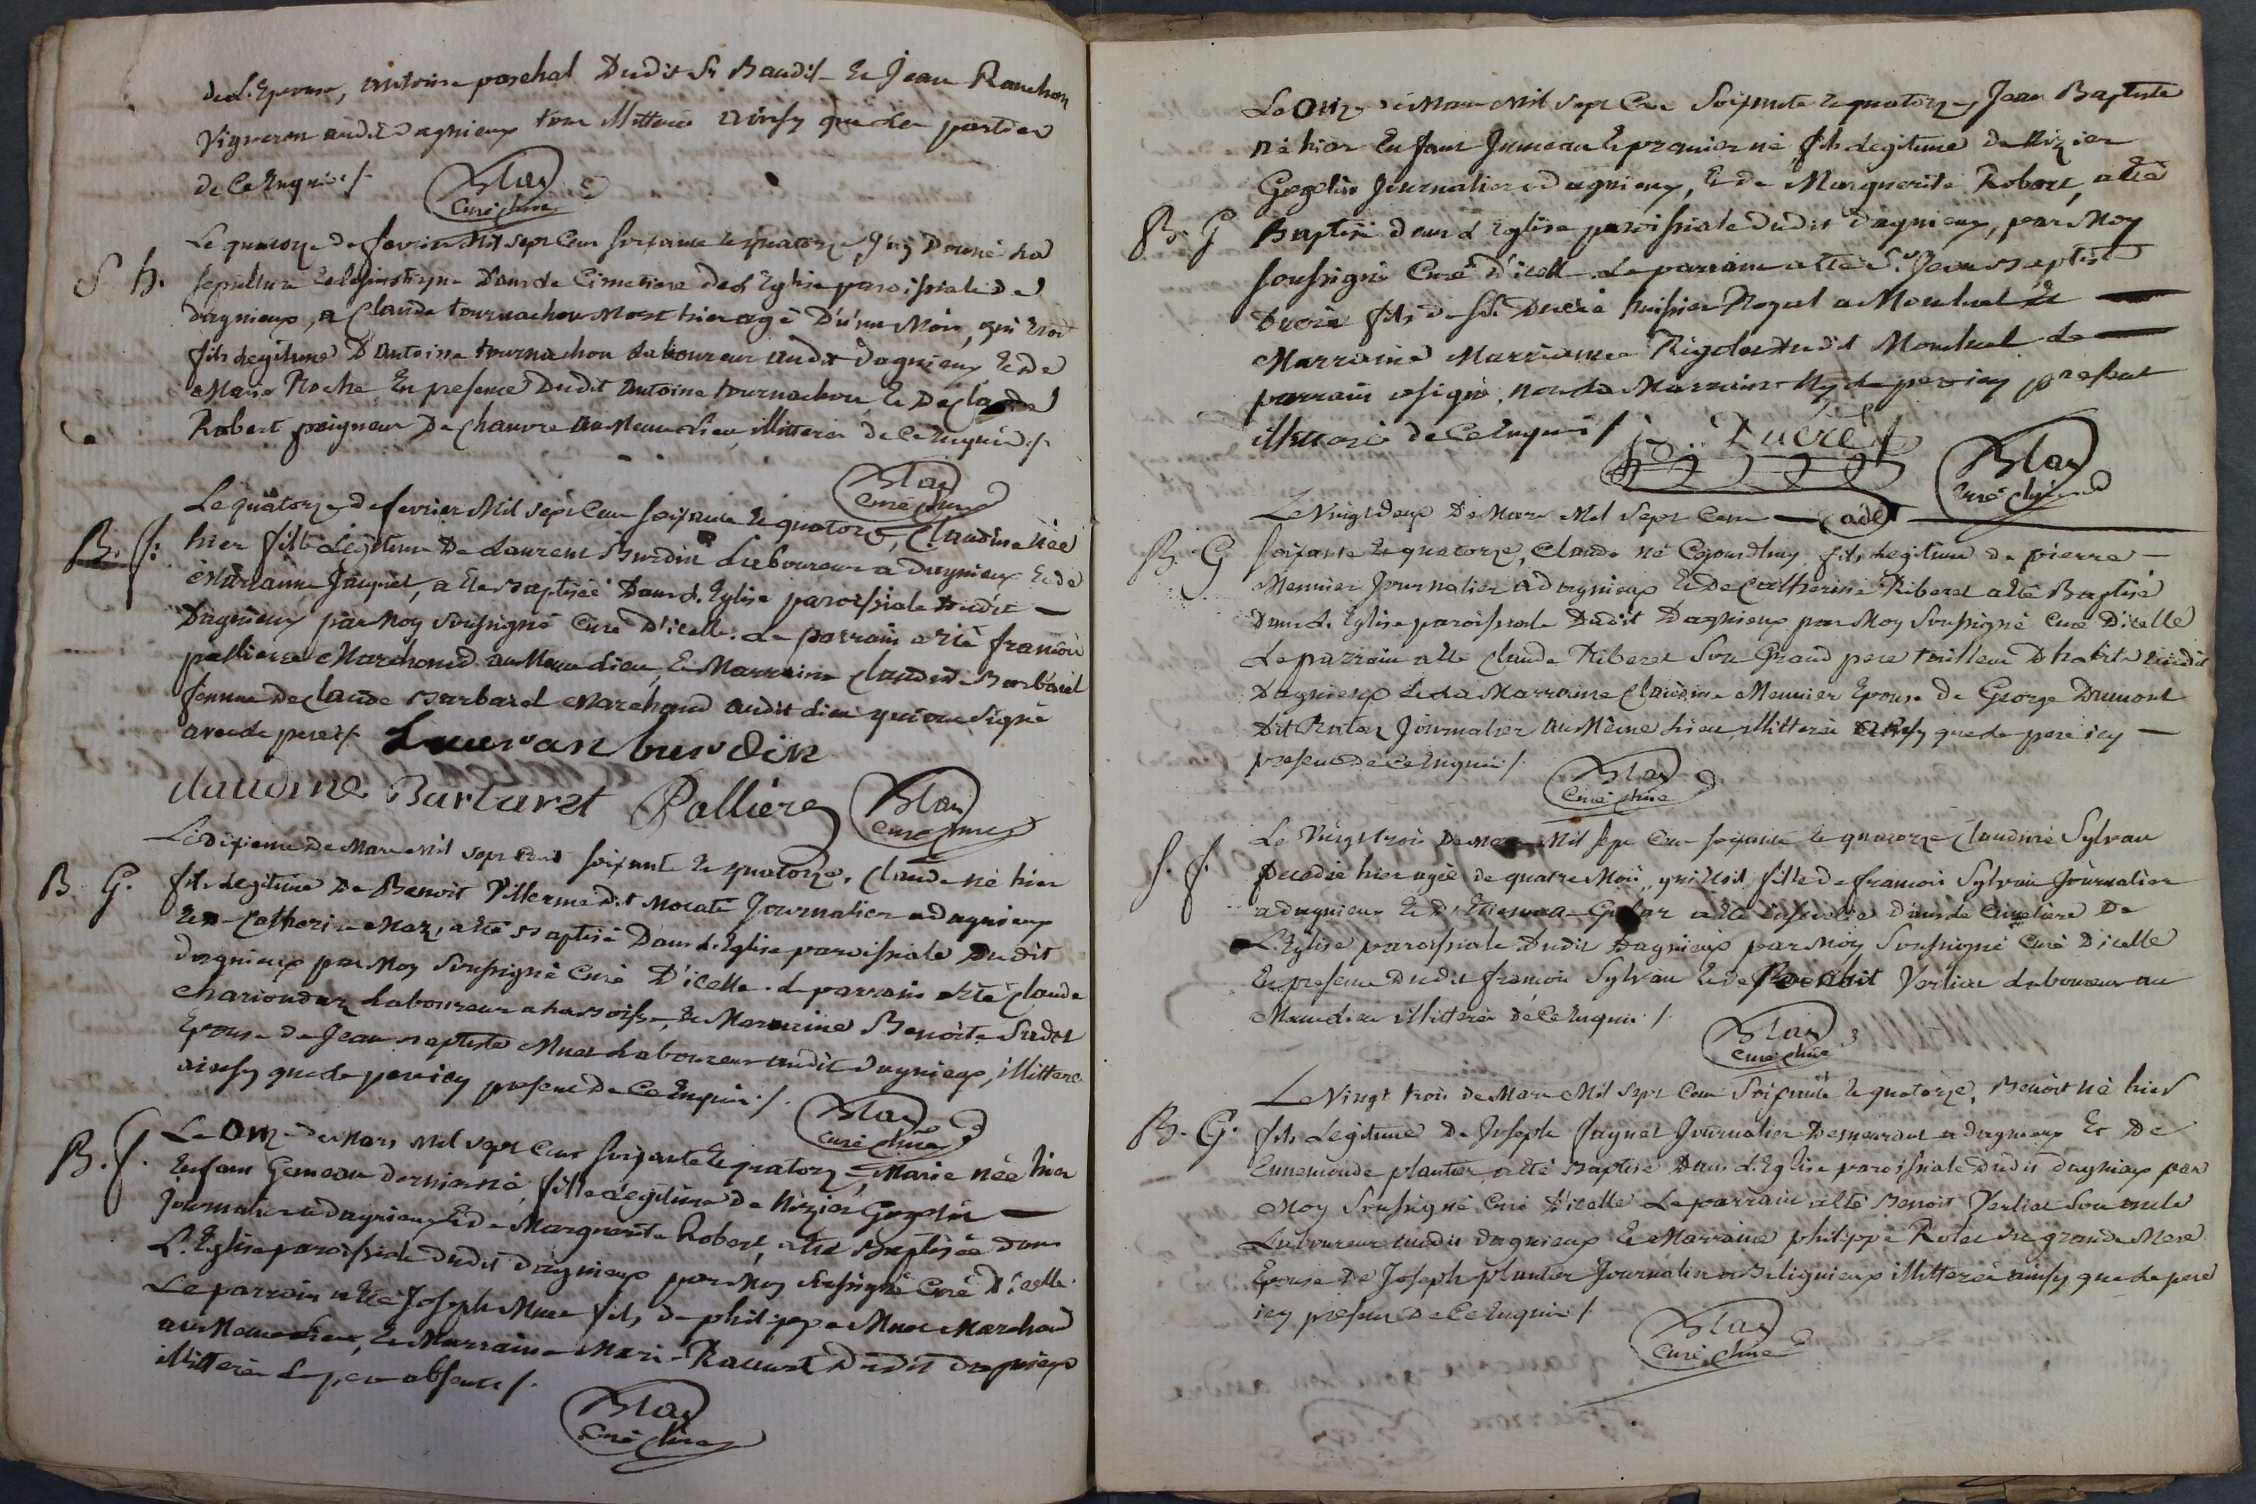 de L'Epouse, antoine paschal Dudit St Baudil et Jean Ranchon
Vigneron audit dagnieux tous illitteres ainsy que les parties
de ce Enquis /.
Blay
Curé
Le quatorze de fevrier Mil sept Cent soixante et quatorze, J'ay Donné La
S h. sepulture Eclesiastique Dans le Cimetiere de L'Eglise paroissiale de
dagnieux, a Claude tournachon Mort hier agé D'un Mois, qui Etoit
fils legitime D'antoine tournachon Laboureur audit dagnieux Et de
Marie Roche En presence Dudit antoine tournachon et De Claude
Robert peigneur De Chanvre au Meme Lieu, illitteres de Ce Enquis /.
Blay
Curé
Le quatorze de fevrier Mil sept Cent soixante et quatorze, Claudine Née
B. f. hier fille Légitime De Laurent Burdin Laboureur a dagnieux Et de
Marianne Jaynet, a été Baptisée Dans L'Eglise paroissiale dudit
Dagnieux par Moy Soussigné Curé D'icelle. Le parrain a été francois
palliere Marchand au Meme Lieu, Et Marraine Claudine Barbaret
femme de Claude Barbaret Marchand audit Lieu qui ont Signé
avec le pere /. Lauran burdin
claudine Barbaret Pallière Blay
Curé
Le Dixieme De Mars Mil sept Cent soixante et quatorze, Claude né hier
B. G. fils legitime De Benoit Villerme dit Mocate Journalier a dagnieux
Et de Catherine Maz, a été Baptisé Dans L'Eglise paroissiale Dudit
dagnieux par Moy Soussigné Curé D'icelle. Le parrain a été Claude
Laboureur a et Marraine Benoite Sudet
Epouse de Jean Baptiste Muet Laboureur audit dagnieux, illitteres
ainsy que le pere icy present De Ce Enquis /.
Blay
Curé
Le Onze de Mars Mil sept Cent soixante et quatorze, Marie née hier
B. f. Enfant Gemeau derniere né, fille Legitime de Nizier Gozelin
Journalier a dagnieux Et de Marguerite Robert, a été Baptisée dans
L'Eglise paroissiale dudit dagnieux par Moy Soussigné Curé D'icelle
Le parrain a été Joseph Muet fils de philippe Muet Marchand
au Meme Lieu, Et Marraine Marie dudit dagnieux
illitteres Le pere absent /.
Blay
Curé
Le Onze de Mars Mil sept Cent Soixante et quatorze, Jean Baptiste
né hier Enfant Jumeau le premier né, fils legitime de Nizier
Gozelin Journalier a dagnieux, Et de Marguerite Robert, a été
B. G Baptisé dans L'Eglise paroissiale dudit dagnieux, par Moy
soussigné Curé D'icelle. Le parrain a été Sr Jean Baptiste
Ducré fils de Sr Ducré huissier Royal a Montluel Et
Marraine Marrianne Rigolet dudit Montluel Le
parrain a signé, non la Marraine Ny le pere icy present
illitteré de Ce Enquis / Ducré
Blay
Curé
Le Vingt deux De Mars Mil Sept Cent
B. G soixante et quatorze, Claude né Ce jourdhuy fils Legitime de pierre
Meunier Journalier a dagnieux Et De Catherine Riberet a été Baptisé
Dans L'Eglise paroissiale Dudit Dagnieux par Moy Soussigné Curé D'icelle
Le parrain a été Claude Riberet Son Grand pere tailleur D'habits audit
Dagnieux Et La Marraine Claudine Meunier Epouse de George Dumont
Dit Journalier au Même Lieu, illitteres ainsy que le pere icy
present De Ce Enquis /.
Blay
Curé
Le Vingt trois De Mars Mil Sept Cent soixante et quatorze Claudine Sylvan
S. f. Decedée hier agée de quatre Mois, qui Etoit fille de francois Sylvan Journalier
a dagnieux Et D'Etiennette a été inhumée dans Le Cimetiere De
L'Eglise paroissiale Dudit Dagnieux par Moy Soussigné Curé D'icelle
En presence Dudit francois Sylvan Et de Benoit Verliat Laboureur au
Meme Lieu illitteres de Ce Enquis /.
Blay
Curé
Le Vingt trois de Mars Mil Sept Cent Soixante et quatorze, Benoit né hier
B. G. fils Legitime De Joseph Jaynet Journalier Demeurant a dagnieux Et De
Ennemonde plantier, a été Baptisé Dans L'Eglise paroissiale dudit dagnieux par
Moy Soussigné Curé D'icelle Le parrain a été Benoit Verliat Son oncle
Laboureur audit dagnieux Et Marraine philippe Rolet sa grande Mere
Epouse De Joseph plantier Journalier a Beligneux illitteres ainsy que le pere
icy present De Ce Enquis /
Blay
Curé